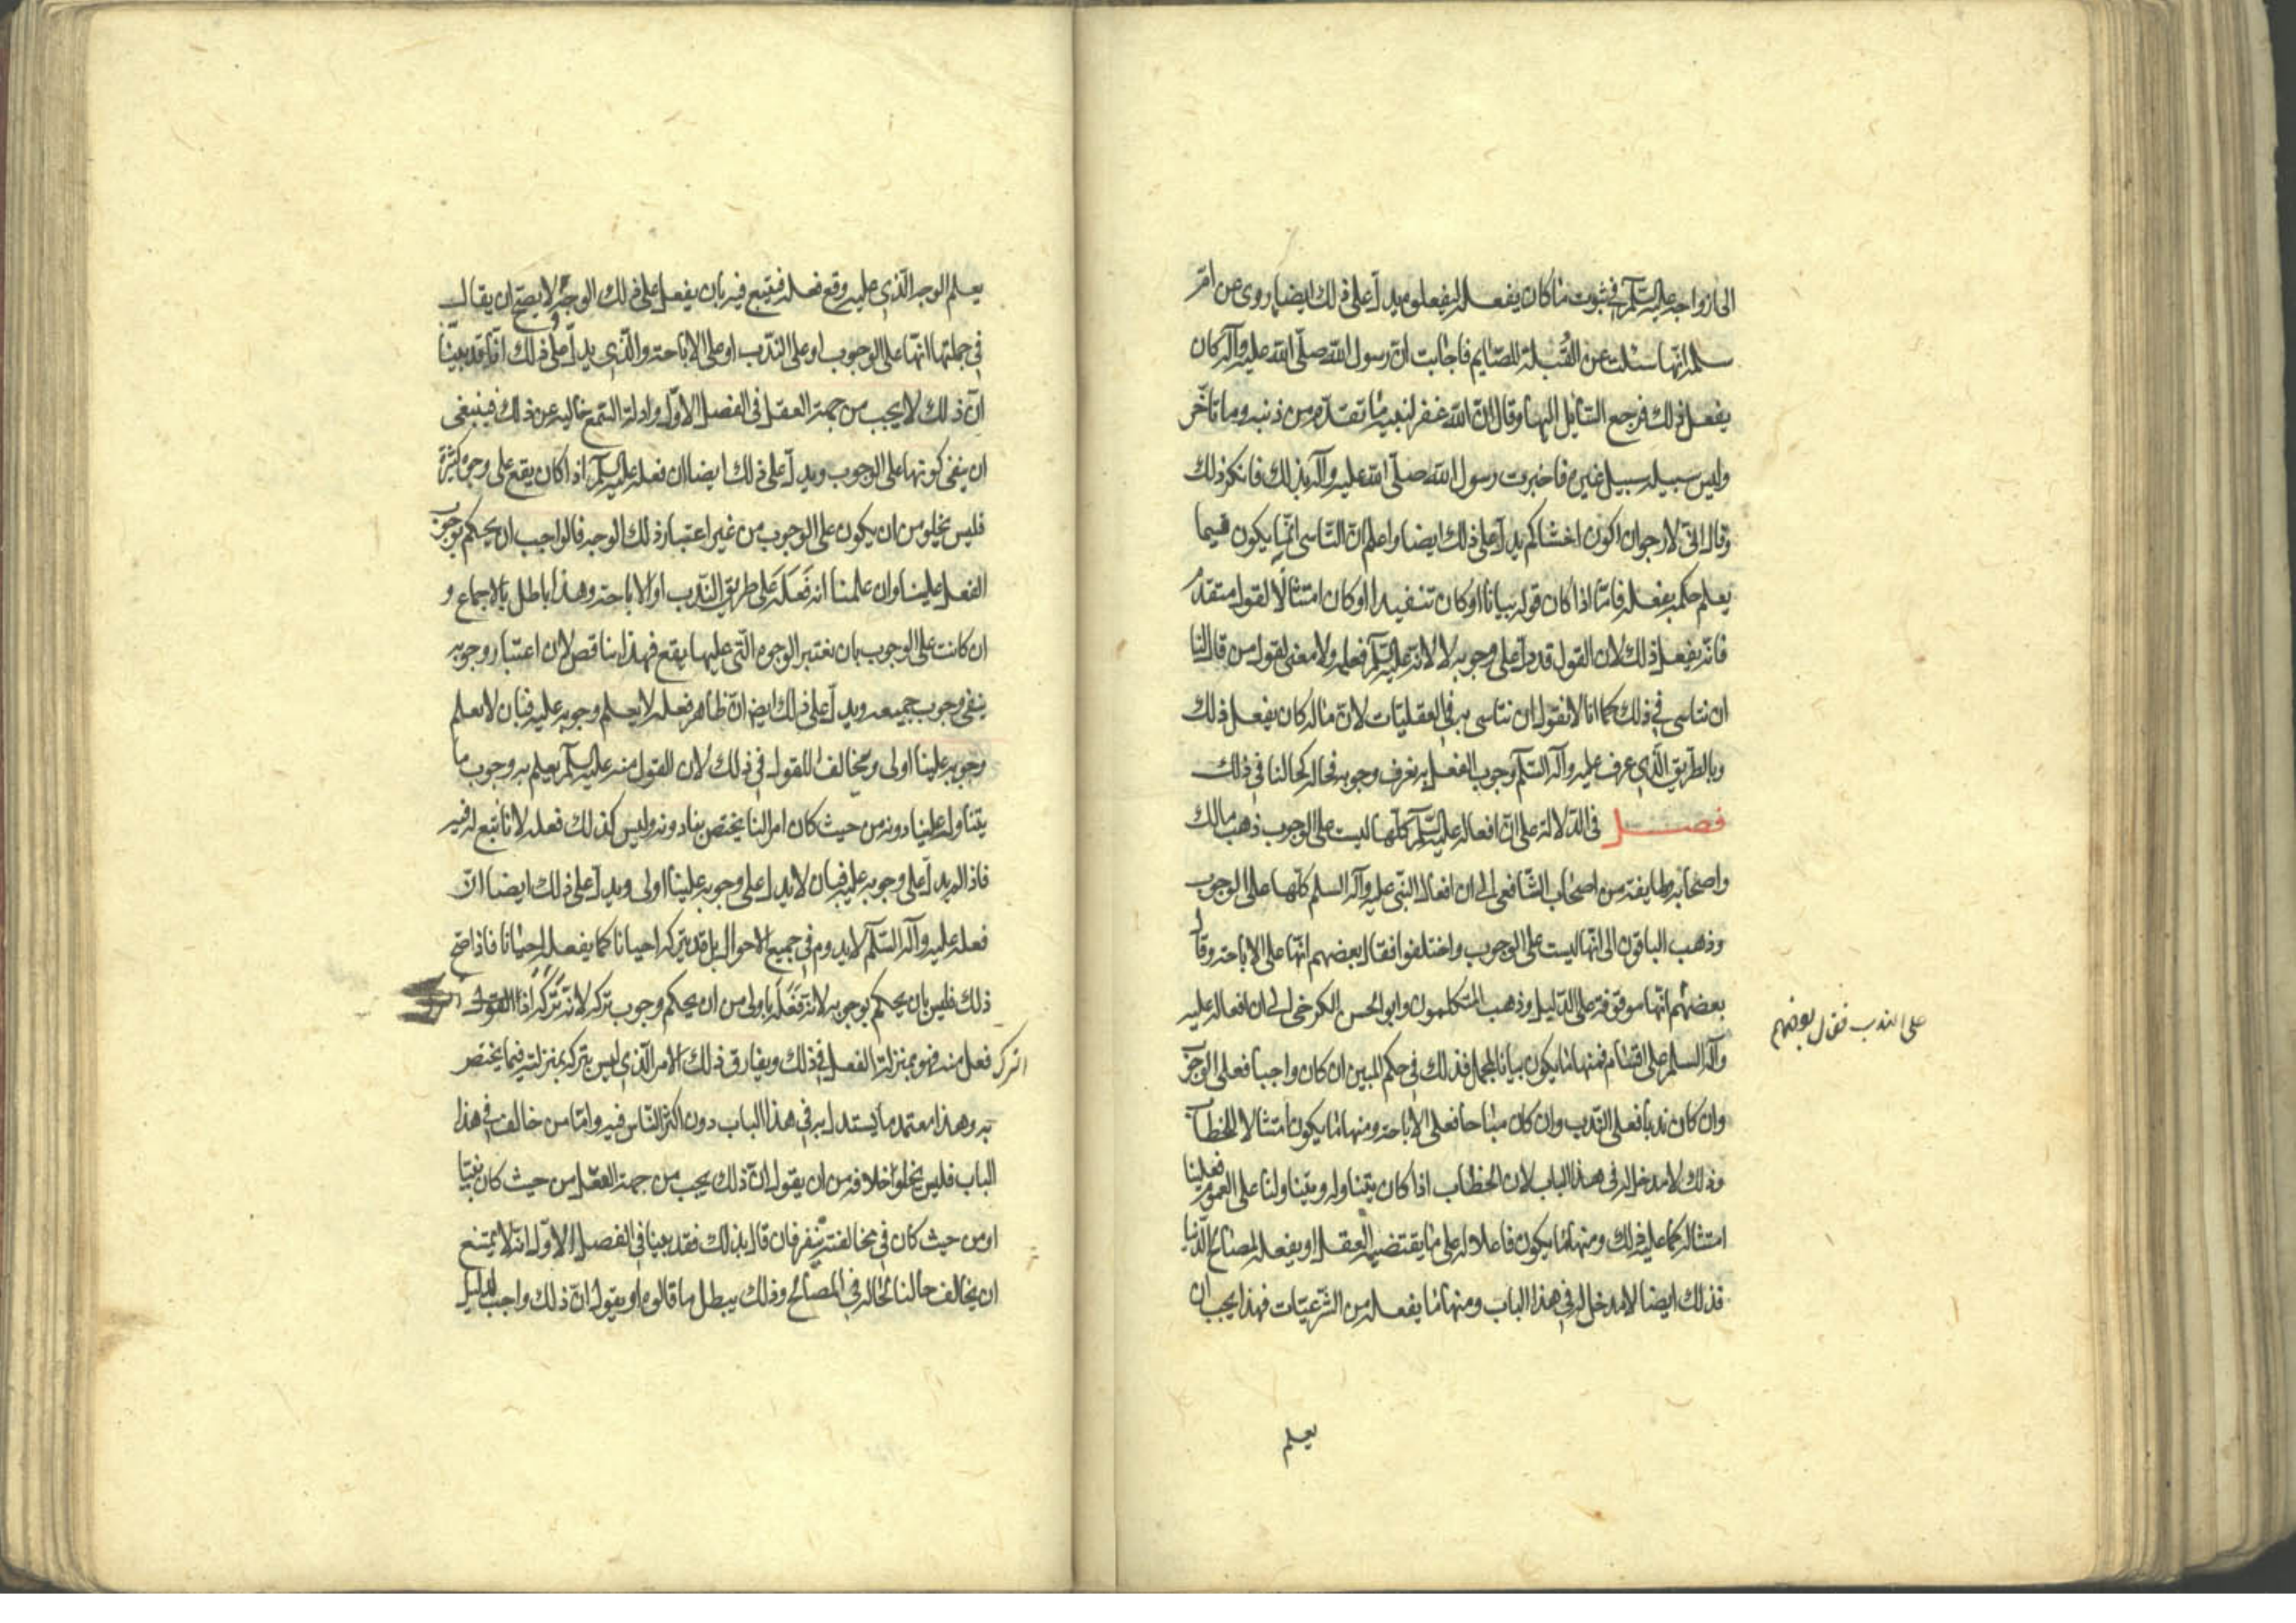 الى ازواجه عليه السّلم في ثبوت ما كان يفعله ليفعلوه ويدلّ على ذلك ايضا ما روى عن امّ
سلمه انّها سئلت عن القُبلة للصّايم فاجابت انّ رسول الله صلّى الله عليه وآله كان
يفعل ذلك فرجع السّايل اليها وقال انّ الله غفر لنبيه ما تقدّم من ذنبه وما تاخّر
وليس سبيله سبيل غيره فاخبرت رسول الله صلّى الله عليه وآله بذلك فانكر ذلك
وقال انّى لارجو ان اكون اخشاكم يدلّ على ذلك ايضا واعلم انّ التاسى انّما يكون فيما
يعلم حكمه بفعله فامّا اذا كان قوله بيانا او كان تنفيذا او كان امتثالا لقول متقدّم
فانّه يفعل ذلك لان القول قد دلّ على وجوبه لا لانّه عليه السّلم فعله ولا معنى لقول من قال لنا
ان نتاسى في ذلك كما انا لا نقول ان نتاسى به في العقليّات لانّ ماله كان يفعل ذلك
وبالطّريق الّذي عرف عليه وآله السّلم وجوب الفعل به نعرف وجوبه فحاله كحالنا في ذلك
فصل في الدّلالة على انّ افعاله عليه السّلم كلّها ليست على الوجوب ذهب مالك
واصحابه وطايفة من اصحاب الشّافعى الى ان افعال النبّى عليه وآله السلم كلّها على الوجوب
وذهب الباقون الى انّها ليست على الوجوب واختلفوا فقال بعضهم انّها على الاباحة وقال
على الندب فقال بعضهم
بعضهم انّها موقوفة على الدّليل وذهب المتكلمون وابو الحسن الكرخى الى ان افعاله عليه
وآله السلم على اقسام فمنها ما يكون بيانا لمجمل فذلك في حكم المبين ان كان واجبا فعلى الوجوب
وان كان ندبا فعلى النّدب وان كان مباحا فعلى الاباحة ومنها ما يكون امتثالا للخطاب
وذلك لا مدخل له في هذا الباب لان الخطاب اذا كان يتناوله ويتناولنا على العموم فعلينا
امتثاله كما عليه ذلك ومنها ما يكون فاعلا له على ما يقتضيه العقل او يفعله لمصالح الدّنيا
فذلك ايضا لا مدخل له في هذا الباب ومنها ما يفعله من الشّرعيّات فهذا يجب ان
يعلم
يعلم الوجه الّذي عليه وقع فعله فيتبع فيه بان يفعل على ذلك الوجه ولا يصحّ ان يقال
في جملتها انّها على الوجوب او على النّدب او على الاباحة والّذي يدلّ على ذلك انّا قد بيّنا
انّ ذلك لا يجب من جهة العقل في الفصل الاوّل وادلة السّمع خالية عن ذلك فينبغى
ان ينفى كونها على الوجوب ويدلّ على ذلك ايضا ان فعله عليه السّلم اذا كان يقع على وجوه كثيرة
فليس يخلو من ان يكون على الوجوب من غير اعتبار ذلك الوجه فالواجب ان يحكم بوجوب
الفعل علينا وان علمنا انه فَعَلَه على طريق النّدب او الاباحة وهذا باطل بالاجماع و
ان كانت على الوجوب بان نعتبر الوجوه الّتى عليها يقع فهذا يناقض لان اعتبار وجوبه
ينفى وجوب جميعه ويدلّ على ذلك ايضا انّ ظاهر فعله لا يعلم وجوبه عليه فبان لا نعلم
وجوبه علينا اولى ومخالف للقول في ذلك لان القول منه عليه السّلم يعلم به وجوب ما
يتناوله علينا دونه من حيث كان امرا لنا يختص بنا دونه وليس كذلك فعله لانا نتبع له فيه
فاذا لم يدلّ على وجوبه عليه فبان لا يدل على وجوبه علينا اولى ويدلّ على ذلك ايضا انّ
فعله عليه وآله السّلم لا يدوم في جميع الاحوال بل قد يتركه احيانا كما يفعله احيانا فاذا صحّ
ذلك فليس بان يحكم بوجوبه لانّه فَعَلَه باولى من ان يحكم وجوب تركه لانّه تَرَكَه اذا القول
الترك فعل منه فهو بمنزلة الفعل في ذلك ويفارق ذلك الامر الّذي ليس بتركه بمنزلته فيما يختصر
به وهذا معتمد ما يستدل به في هذا الباب دون اكثر النّاس فيه وامّا من خالف في هذا
الباب فليس يخلو خلافه من ان يقول انّ ذلك يجب من جهة العقل من حيث كان نبيّا
او من حيث كان في مخالفته تنفير فان قال بذلك فقد بينا في الفصل الاوّل انّه لا يمتنع
ان يخالف حالنا لحاله في المصالح وذلك يبطل ما قالوه او يقول انّ ذلك واجب لدليل